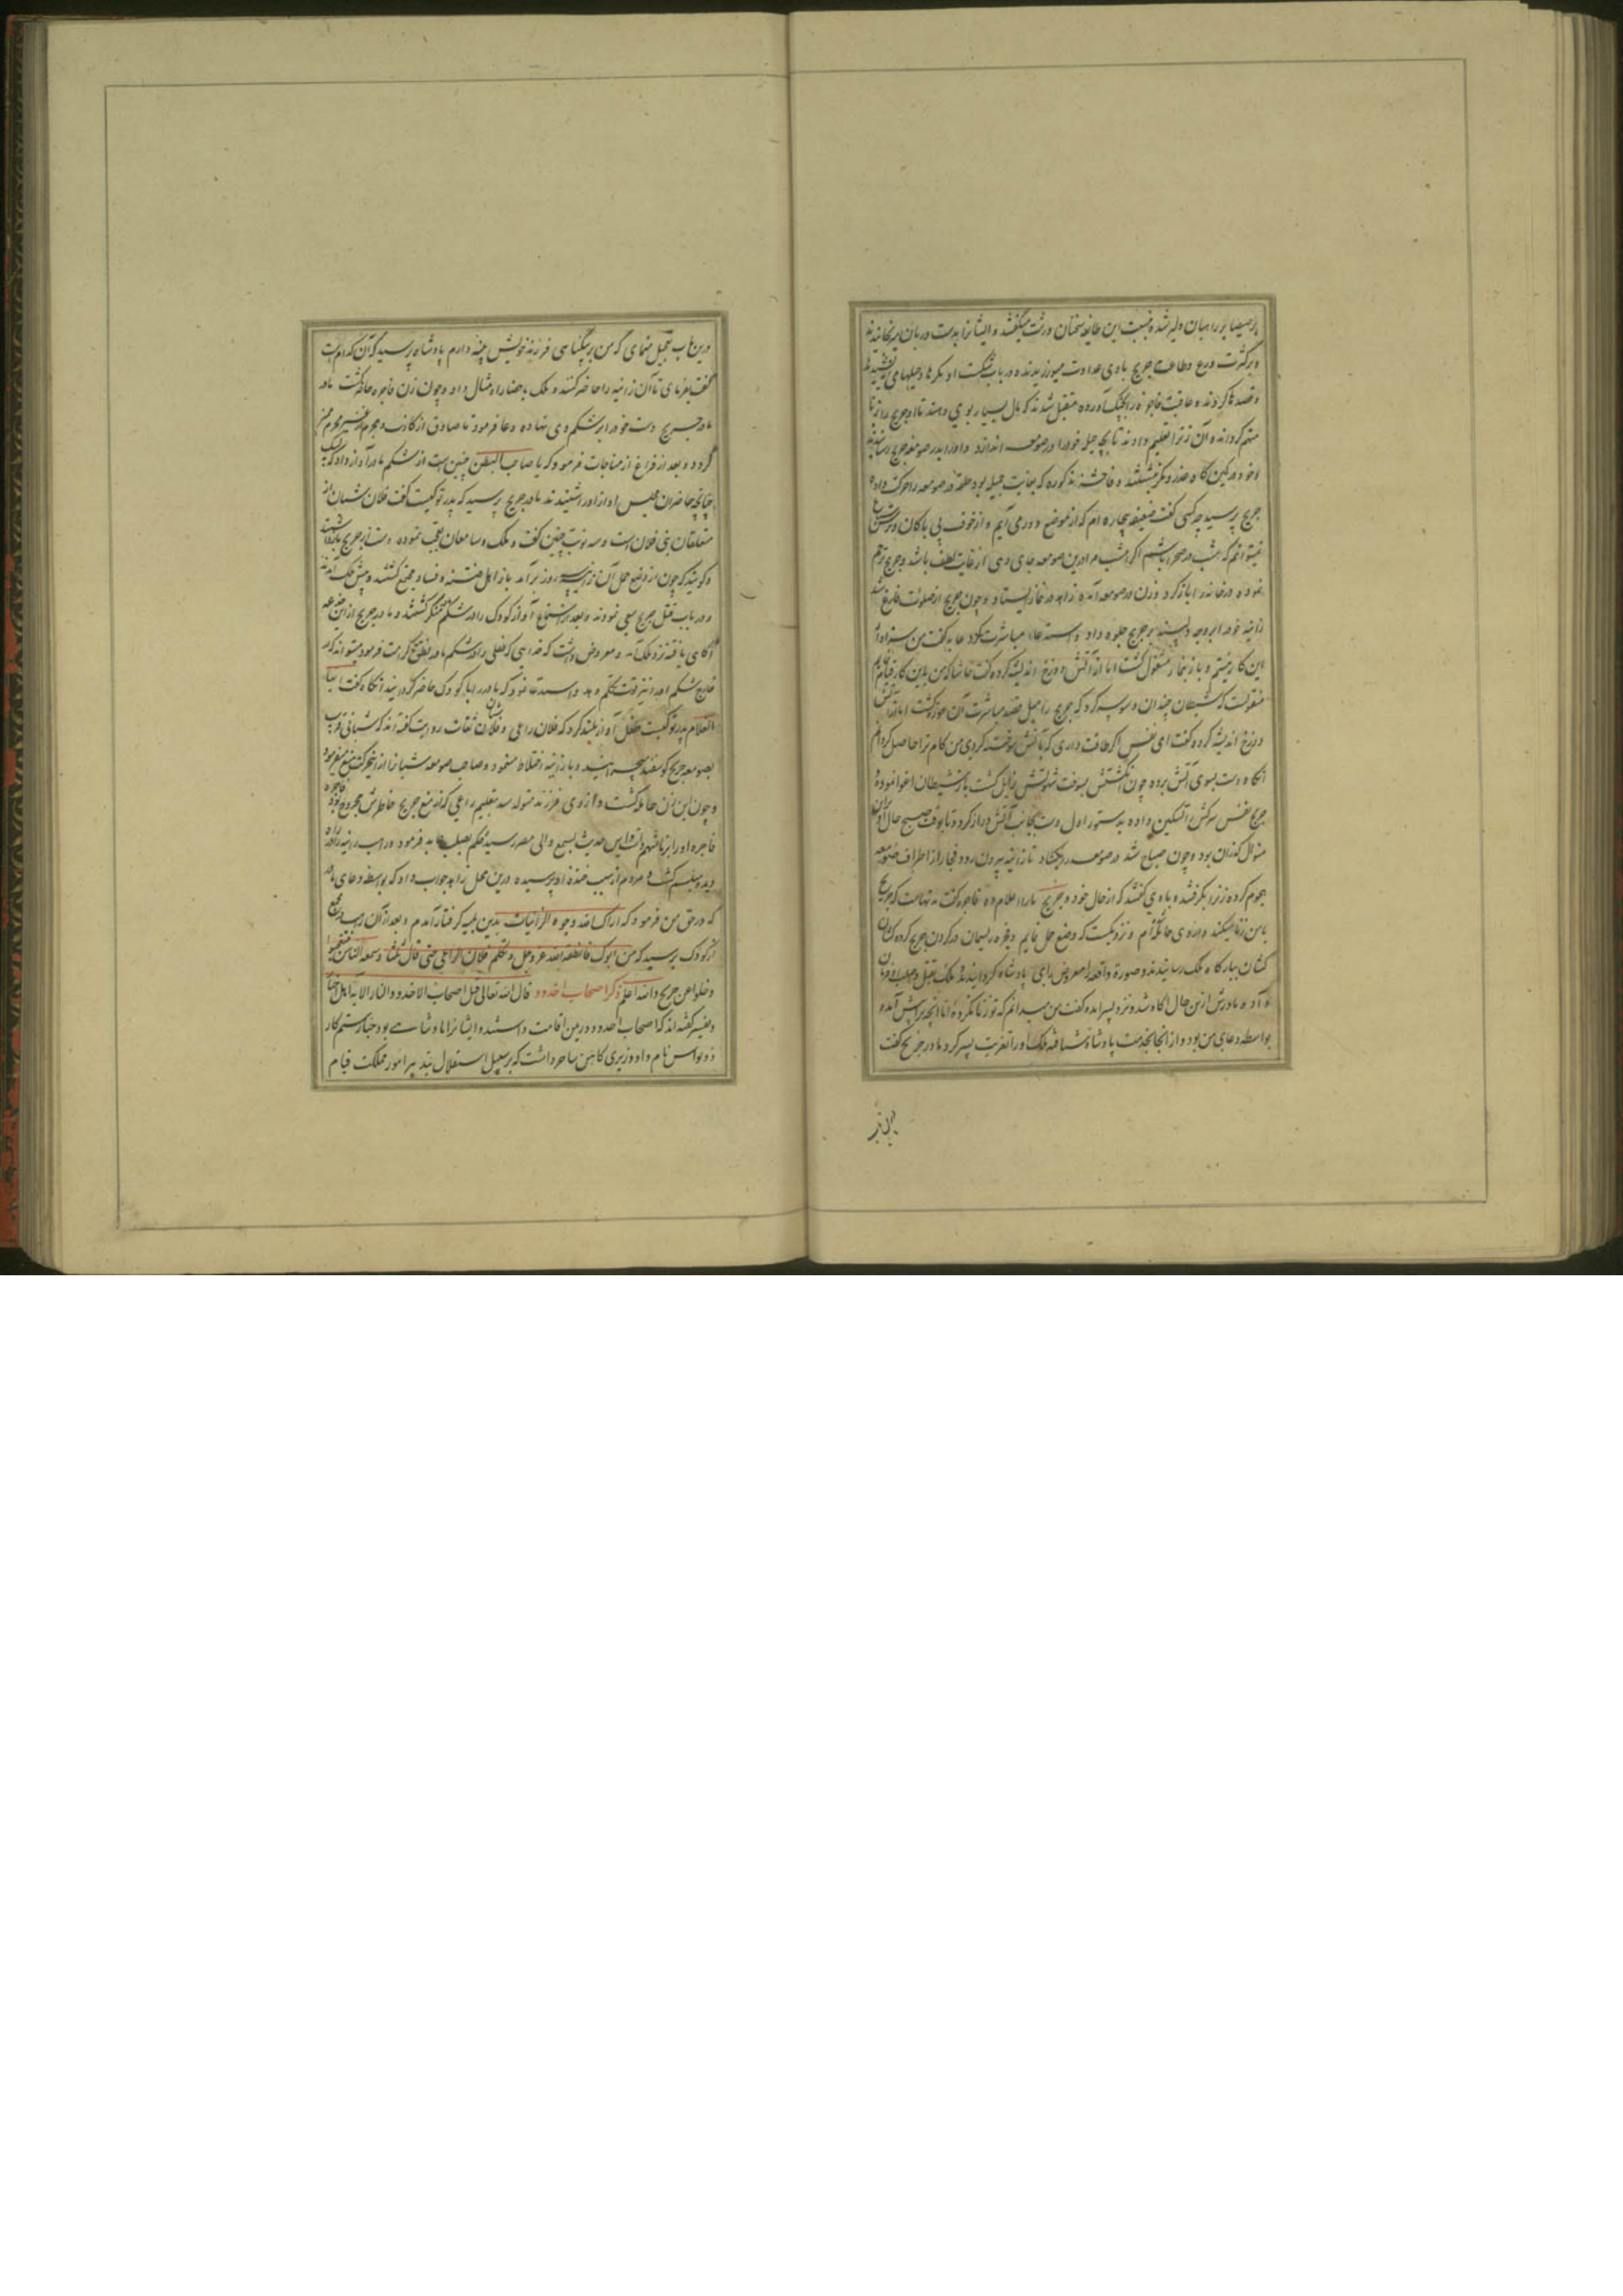 برصیصا بر راهبان دلیر شده نسبت این طایفه سخنان درشت میگفتند و ایشانرا بدست و زبان میرنجانیدند
و بر کثرت ورع و طاعت جریج با وی عداوت میورزیدند و در باب شکست او مکرها و حیلها می
و قصدها کردند و عاقبت فاجره را بچنگ آورده متقبل شدند که مال بسیار بوی دهند تا او جریج را بزنا
متهم گرداند و آن زنرا تعلیم دادند تا بچه حیل خود را در صومعه اندازد و او را بدر صومعه جریج رسانیدند
و خود در کمین گاه غدر و مکر نشستند و فاحشه مذکوره که بغایت جمیله بود حلقه در صومعه را حرکت داده
جریج پرسید چه کسی گفت ضعیفه بیچاره ام که از موضع دور می آیم و از خوف بی باکان
نمیتوانم که شب در صحرا باشم اگر امشب مرا درین صومعه جای دهی از غایت لطف باشد و جریج ترحم
نموده در خانه را باز کرد و زن در صومعه آمده زاهد در نماز ایستاد و چون جریج از صلوت فارغ شد
زانیه خود را بوجه دلپسند بر جریج جلوه داد و استدعاء مباشرت کرد عابد گفت من سزاوار
این کار نیستم و باز بنماز مشغول گشت اما از آتش دوزخ اندیشه کرده گفت حاشا که من بدین کار قیام نمایم
منقولست که شیطان چندان وسوسه کرد که جریج را میل قصد مباشرت آن عورت گشت اما از آتش
دوزخ اندیشه کرده گفت ای نفس اگر طاقت داری که بآتش سوخته گردی من کام ترا حاصل گردانم
آنگاه دست بسوی آتش برده چون انگشتش بسوخت شهوتش زایل گشت باز شیطان اغوا نموده
جریج نفس سرکش را تسکین داده بدستور اول دست بجانب آتش دراز کرد و تا بوقت صبح حال او برین
منوال گذران بود و چون صباح شد در صومعه را بگشاد تا زانیه بیرون رود فجار از اطراف صومعه
هجوم کرده زنرا بگرفتند و با وی گفتند که از حال خود و جریج ما را اعلام ده فاجره گفت مدتهاست که جریج
با من زنا میکند و از وی حامله ام و نزدیکست که وضع حمل نمایم و فجره ریسمان در گردن جریج کرده کشان
کشان ببارگاه ملک رسانیدند و صورة واقعه را معروض رای پادشاه گردانیدند و ملک بقتل و صلب او فرمان
داده مادرش ازین حال آگاه شد و نزد پسر آمده گفت من میدانم که تو زنا نکرده اما آنچه پیش آمده
بواسطه دعای من بود و از آنجا بخدمت پادشاه شتافته ملک او را تعزیت پسر کرد مادر جریج گفت
درین باب
درین باب تعجیل منمای که من بر بیگناهی فرزند خویش بینه دارم پادشاه پرسید که آن کدامست
گفت بفرمای تا آن زانیه را حاضر کنند و ملک باحضار او مثال داد و چون زن فاجره حاضر گشت مادر
مادر جریج دست خود را بر شکم وی نهاده دعا فرمود تا صادق از کاذب و مجرم از غیر مجرم ممیز
گردد و بعد از فراغ از مناجات فرمود که یا صاحب البطن جنین است از شکم مادر آواز داد که لبیک
چنانچه حاضران مجلس آواز او را شنیدند مادر جریج پرسید که پدر تو کیست گفت فلان شبان از
متعلقان بنی فلان است و سه نوبت چنین گفت و ملک و سامعان تعجب نموده دست از جریج باز داشتند
و گویند که چون از وضع حمل آن زانیه سه روز برآمد باز اهل فتنه و فساد مجتمع گشتند و پیش ملک آمدند
و در باب قتل جریج سعی نمودند و بعد از استماع آواز کودک را در شکم منکر گشتند و مادر جریج ازین
آگاهی یافته نزد ملک آمد و معروض داشت که خدایی که طفلی را در شکم مادر نطق کرامت فرمود میتواند که در
خارج شکم او را نیز قوت تکلم دهد و استدعا نمود که مادر را با کودک حاضر گردانید آنگاه گفت ایها
الغلام پدر تو کیست طفل آواز بلند کرد که فلان راعی و فلان شبان ثقات روایت کفته اند که شبانی قریب
بصومعه جریج گوسفند میچرانید و با زانیه اختلاط مینمود و صاحب صومعه شبانرا از این حرکت منع میفرمود
و چون این زن حامله گشت و از وی فرزند متولد شد بتعلیم راعی که از منع جریج خاطرش مجروح بود فاجره
فاجره او را بزنا متهم داشت و این حدیث بسمع والی مصر رسید حکم بصلب عابد فرمود و راهب زانیه را در راه
دید و متبسم گشت و مردم از سبب خنده او پرسیده درین محل زاهد جواب داد که بواسطه دعای مادر
که در حق من فرمود که اراک الله وجوه الزانیات بدین بلیه گرفتار آمدم و بعد از آن راهب در مجمع
از کودک پرسید که من ابوک فانطقه الله عز و جل و تکلم فلان الراعی حتی قال ثلثا و سمعه الناس
و خلوا عن جریج والله اعلم ذکر اصحاب اخدود قال الله تعالی قتل اصحاب الاخدود النار الآیه اهل اخبار
و تفسیر گفته اند که اصحاب اخدود در یمن اقامت داشتند و ایشانرا پادشاهی بود جبار ستمکار
ذونواس نام و او وزیری کاهن ساحر داشت که بر سبیل استقلال بتدبیر امور مملکت قیام